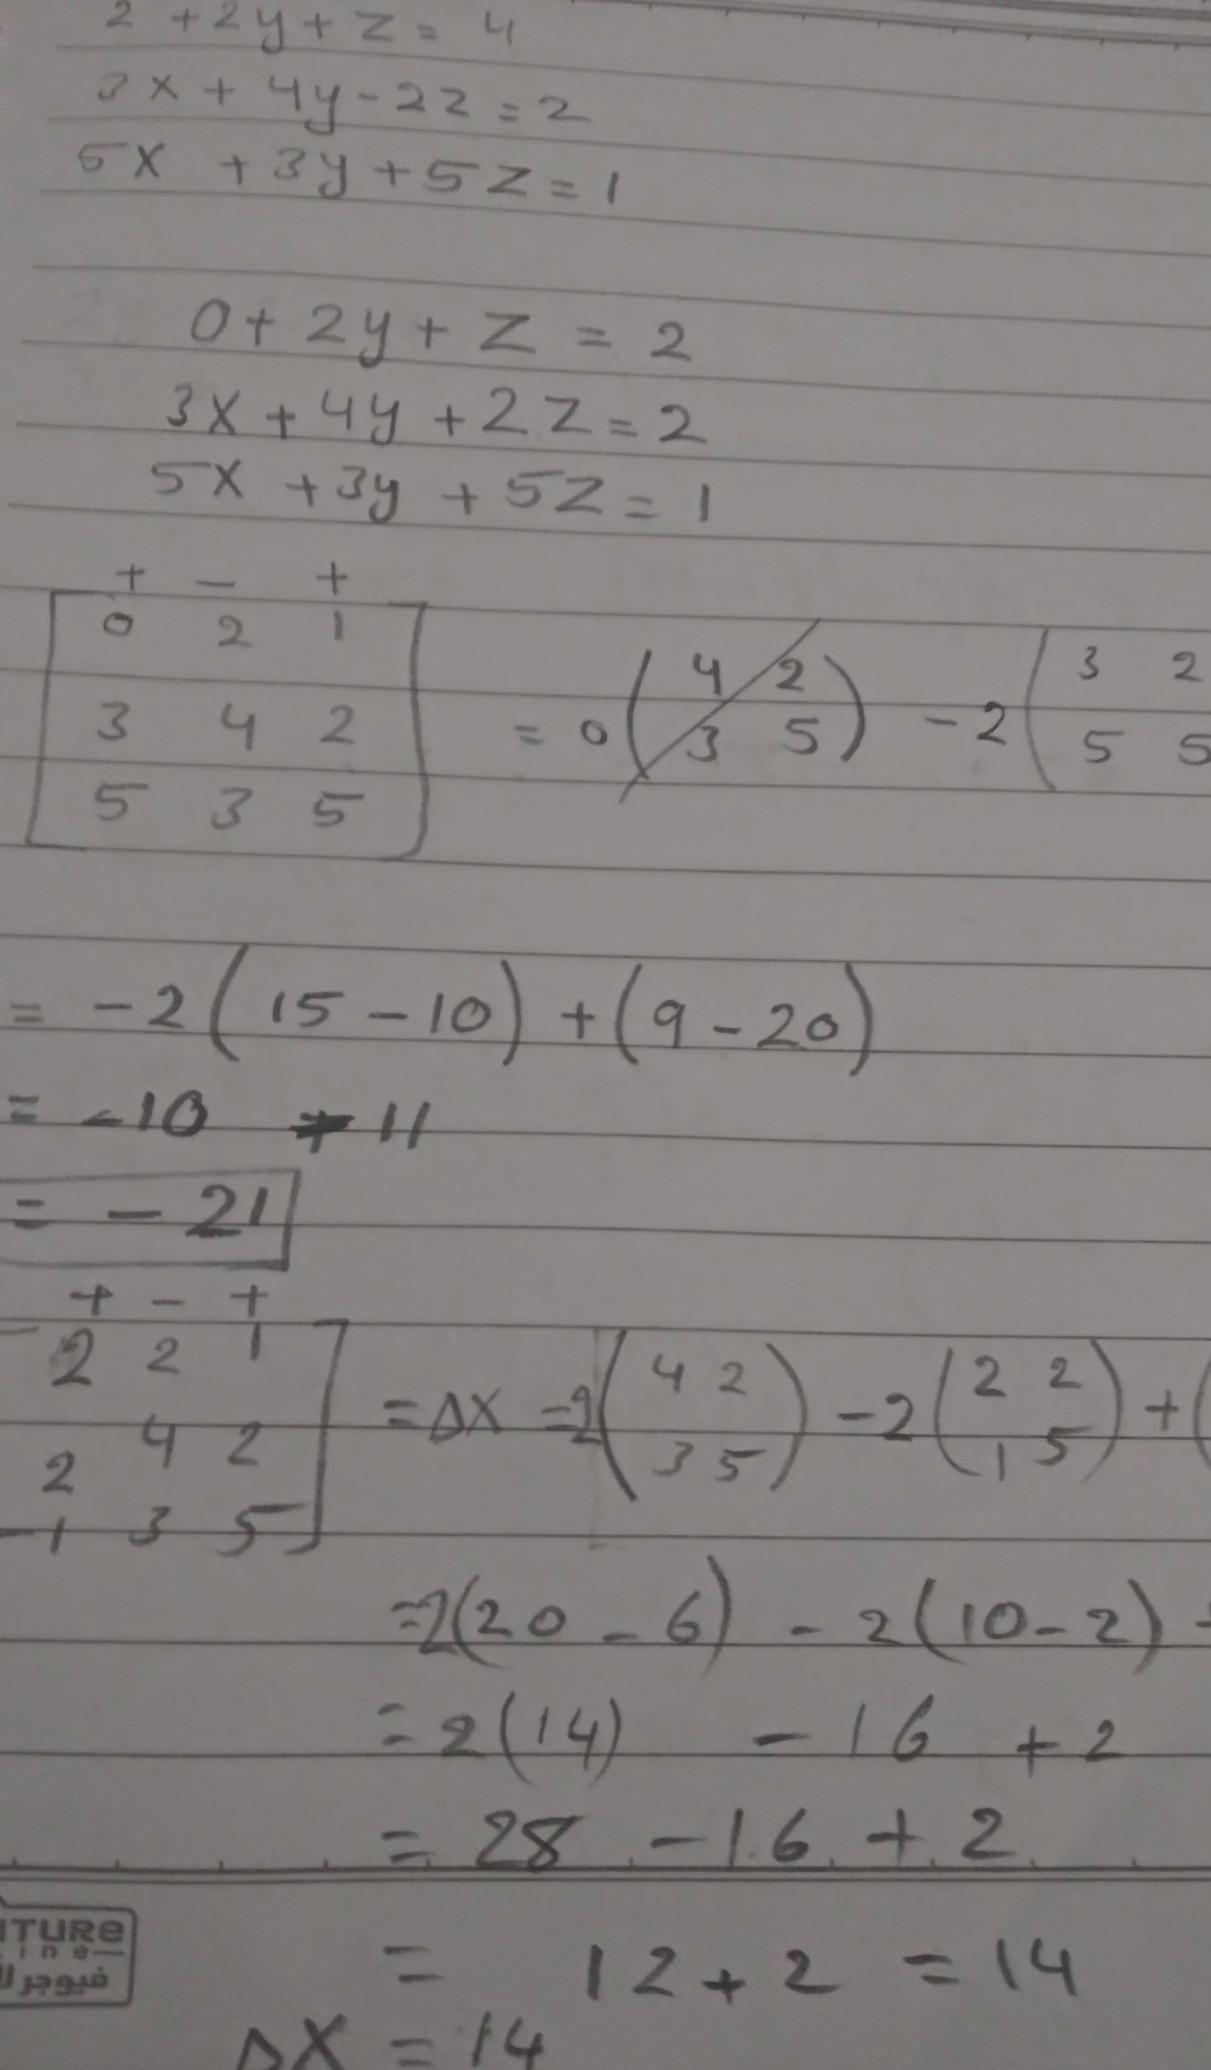 2 + 2y + z = 4
3x + 4y - 2z = 2
5x + 3y + 5z = 1
0 + 2y + z = 2
3x + 4y + 2z = 2
5x + 3y + 5z = 1
+ - +
0 2 1
3 4 2
5 3 5
= 0 ( 4 2
3 5 ) - 2 ( 3 2
5 5
= -2 ( 15 - 10 ) + ( 9 - 20 )
= -10 - 11
= - 21
+ - +
2 2 1
2 4 2
1 3 5
= Δx = 2 ( 4 2
3 5 ) - 2 ( 2 2
1 5 ) + (
= 2 ( 20 - 6 ) - 2 ( 10 - 2 ) +
= 2 ( 14 ) - 16 + 2
= 28 - 16 + 2
= 12 + 2 = 14
Δx = 14